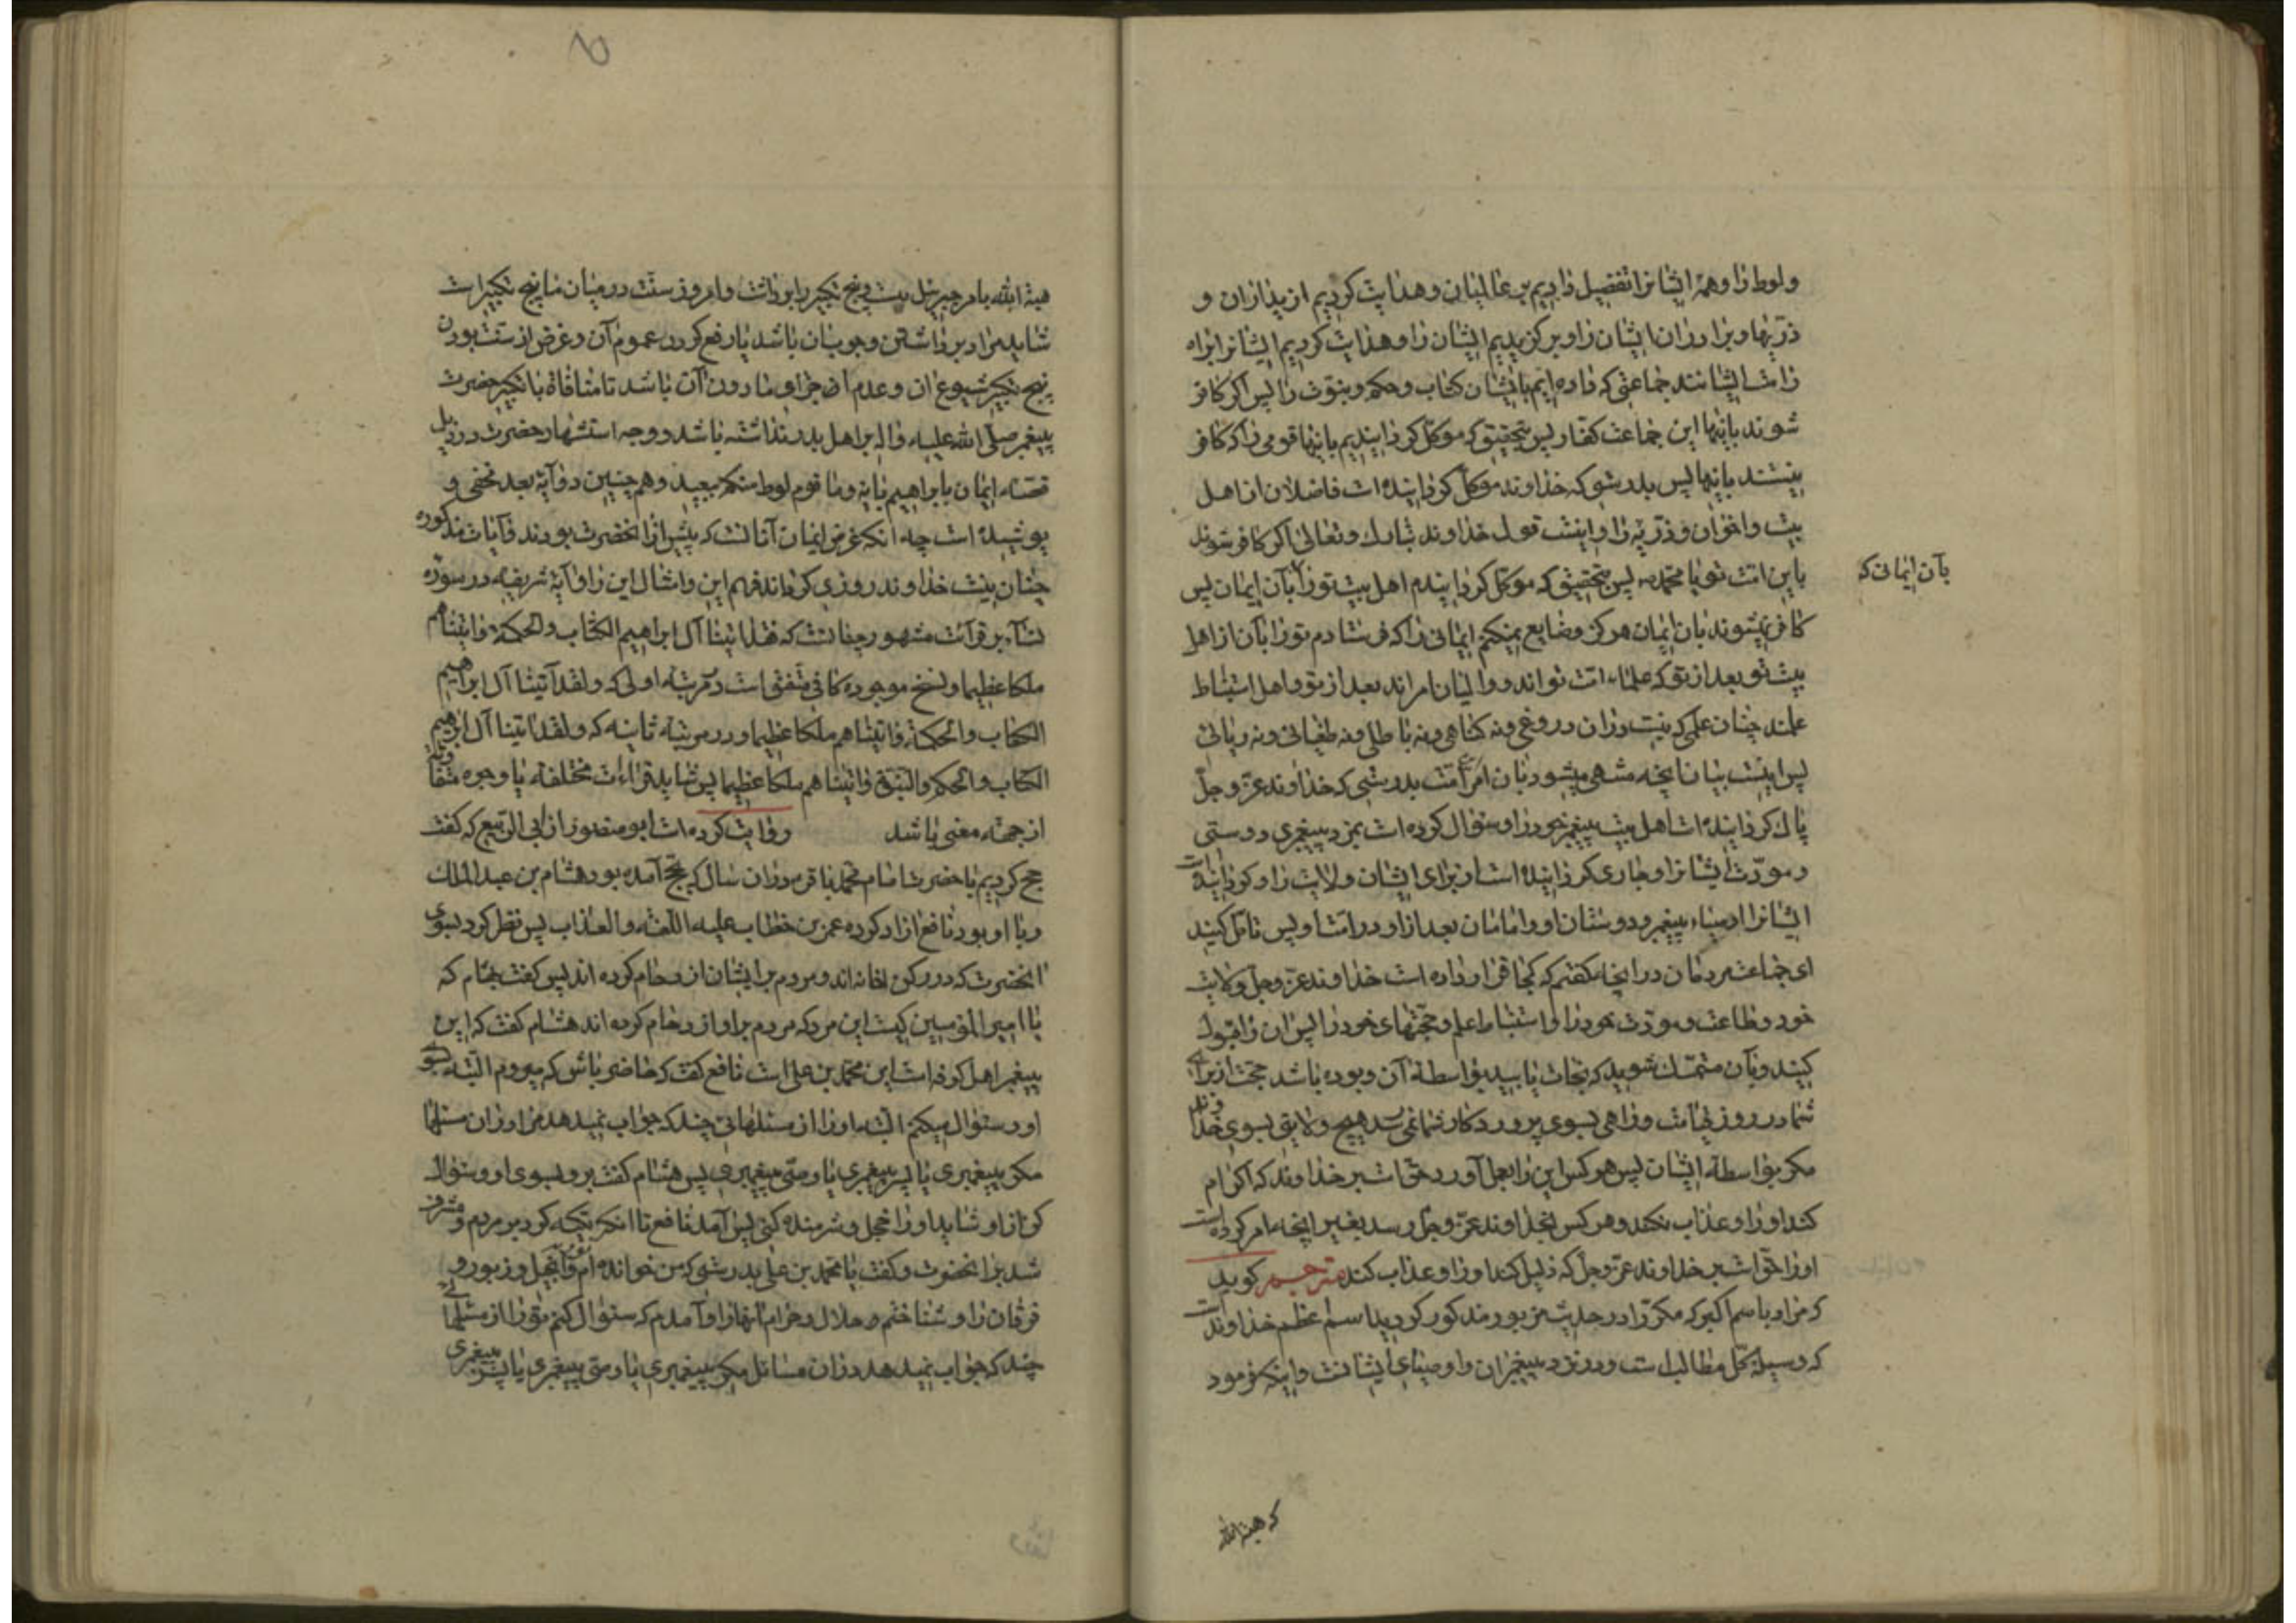 ولوط را وهمۀ ایشانرا تفضیل دادیم بر عالمیان وهدایت کردیم از پدران و
ذریّها وبرادران ایشان را وبرگزیدیم ایشان را وهدایت کردیم ایشانرا براه
راست ایشانند جماعتی که داده ایم بایشان کتاب وحکم ونبوت را پس اگر کافر
شوند باینها این جماعت کفار پس بتحقیق که موکل گردانیدیم باینها قومی را که کافر
نیستند باینها پس بدرستی که خداوند موکل گردانیده است فاضلان از اهل
بیت واخوان وذریّه را واینست قول خداوند تبارک وتعالی اگر کافر شوند
باین امت تو یا محمد ص پس بتحقیق که موکل گردانیدم اهل بیت تو را بآن ایمان پس
بآن ایمانی که
کافر نمیشوند بان ایمان هرگز وضایع نمیکنم ایمانی را که فرستادم تو را بآن از اهل
بیت تو بعد از تو که علماء امت تواند ووالیان امراند بعد از تو واهل استنباط
علمند چنان علمی که نیست در آن دروغی ونه گناهی ونه باطلی ونه طغیانی ونه ریائی
پس اینست بیان آنچه منتهی میشود بان امر امت بدرستی که خداوند عز وجل
پاک گردانیده است اهل بیت پیغمبر خود را وسئوال کرده است بمزد پیغمبری دوستی
ومودّت ایشانرا وجاری گردانیده است از برای ایشان ولایت را وگردانیده است
ایشانرا اوصیاء پیغمبر ودوستان او وامامان بعد از او در امت او پس تامّل کنید
ای جماعت مردمان در آنچه گفتم که کجا قرار داده است خداوند عز وجل ولایت
خود وطاعت ومودّت خود را واستنباط علم وحجتهای خود را پس آن را قبول
کنید وبآن متمسّک شوید که نجات یابید بواسطۀ آن وبوده باشد حجت از برای
شما در روز قیامت وراهی بسوی پروردگار شما نمی رسد هیچ ولایتی بسوی خداوند
مگر بواسطۀ ایشان پس هر کس این را بعمل آورد حق است بر خداوند که اکرام
کند او را وعذاب نکند وهر کس بخداوند عز وجل رسد بغیر آنچه امر کرده است
او را حق است بر خداوند عز وجل که ذلیل کند او را وعذاب کند مترجم گوید
که مراد باسم اکبر که مکرّرا در حدیث مزبور مذکور گردید اسم اعظم خداوند است
که وسیلۀ کل مطالب است ودر نزد پیغمبران واوصیای ایشانست واینکه فرمود
که هبة الله
هبة الله بامر جبرئیل بیست وپنج تکبیر را برداشت وامروز سنت در میان ما پنج تکبیر است
شاید مراد برداشتن وجوب آن باشد یا رفع کردن عموم آن وغرض از سنت بودن
پنج تکبیر شیوع آن وعدم اجزاء مادون آن باشد تا منافاة با تکبیر حضرت
پیغمبر صلّی الله علیه واله بر اهل بدر نداشته باشد ووجه استشهاد حضرت در ذیل
قصّۀ ایمان بابراهیم بایۀ وما قوم لوط منکم ببعید وهم چنین دو آیۀ بعد مخفی و
پوشیده است چه آنکه غرض ایمان آنانست که پیش از آنحضرت بودند وآیات مذکوره
چنان نیست خداوند روزی گرداند فهم این وامثال این را وآیۀ شریفه در سورۀ
نسآء بر قرآئت مشهور چنانست که فقد اتینا آل ابراهیم الکتاب والحکمة واتیناهم
ملکا عظیما ونسخ موجودۀ کافی متفق است در مرتبۀ اولی که ولقد آتینا آل ابراهیم
الکتاب والحکمة واتیناهم ملکا عظیما ودر مرتبۀ ثانیه که ولقد اتینا آل ابراهیم
الکتاب والحکم والنبوّة واتیناهم ملکا عظیما پس شاید قرآءات مختلفه یا وجوه متفاوته
از جهة معنی باشد روایت کرده است ابو منصور از ابی الربیع که گفت
حج کردیم با حضرت امام محمد باقر ع در آن سال که بحج آمده بود هشام بن عبد الملک
وبا او بود نافع ازاد کرده عمر بن خطاب علیه اللعنه والعذاب پس نظر کرد بسوی
آنحضرت که در رکن خانه اند ومردم بر ایشان ازدحام کرده اند پس گفت بهشام که
یا امیر المؤمنین کیست این مرد که مردم بر او ازدحام کرده اند هشام گفت که این
پیغمبر اهل کوفه است این محمد بن علی است نافع گفت که حاضر باش که میروم البته بسوی
او وسئوال میکنم البته او را از مسئلهائی چند که جواب نمیدهد مرا در آن مسئلها
مگر پیغمبری یا پسر پیغمبری یا وصی پیغمبری پس هشام گفت برو بسوی او وسئوال
کن از او شاید او را خجل وشرمنده کنی پس آمد نافع تا آنکه تکیه کرد بر مردم ومشرف
شد بر آنحضرت وگفت یا محمد بن علی بدرستی که من خوانده ام توریة وانجیل وزبور و
فرقان را وشناختم حلال وحرام آنها را وآمدم که سئوال کنم تو را از مسئلهائی
چند که جواب نمیدهد در آن مسائل مگر پیغمبری یا وصی پیغمبری یا پسر پیغمبری